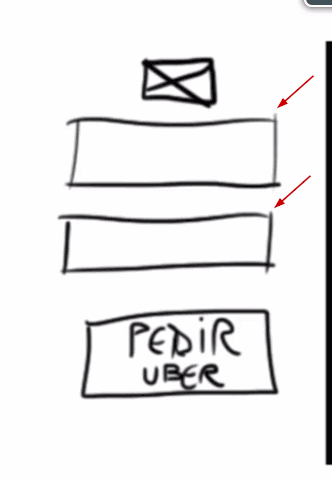 PEDIR
UBER